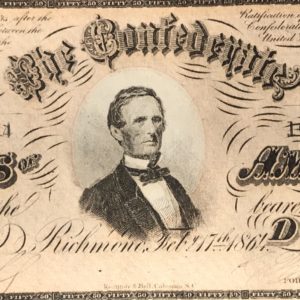 FIFTY 50 FIFTY 50 FIFTY 50 FIFTY 50
after the
Ratification
between the
Confederate
the
United
The Confederate
A
S OF
AM
the
bearer
Richmond, Feb. 17th 1864
D
Keatinge & Ball, Columbia, S.C.
FOU
50 FIFTY 50 FIFTY 50 FIFTY